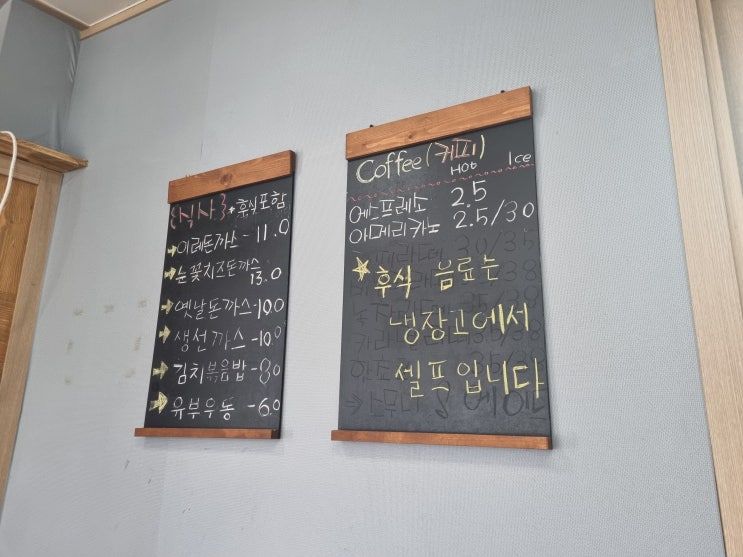 {식사} * 후식포함
→ 이레돈까스 - 11.0
→ 눈꽃치즈돈까스
13.0
→ 옛날돈까스 - 10.0
→ 생선까스 - 10.0
→ 김치볶음밥 - 8.0
→ 유부우동 - 6.0
Coffee (커피)
HOt Ice
에스프레소 2.5
아메리카노 2.5/30
☆ 후식 음료는
냉장고에서
셀프입니다